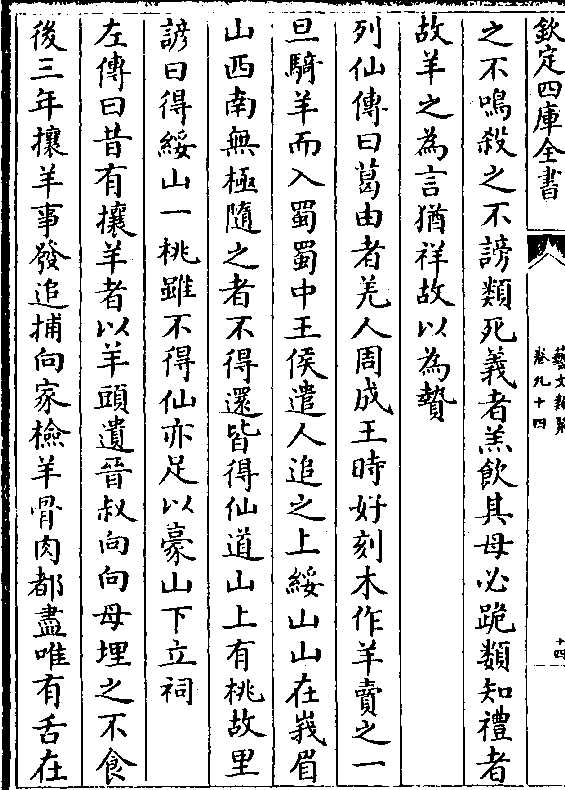 欽定四庫全書
藝文類聚
卷九十四
十四
之不鳴殺之不謗類死義者羔飲其母必跪類知禮者
故羊之為言猶祥故以為贄
列仙傳曰葛由者羌人周成王時好刻木作羊賣之一
旦騎羊而入蜀蜀中王侯遣人追之上綏山山在峩眉
山西南無極隨之者不得還皆得仙道山上有桃故里
諺曰得綏山一桃雖不得仙亦足以豪山下立祠
左傳曰昔有攘羊者以羊頭遺晉叔向向母埋之不食
後三年攘羊事發追捕向家檢羊骨肉都盡唯有舌在